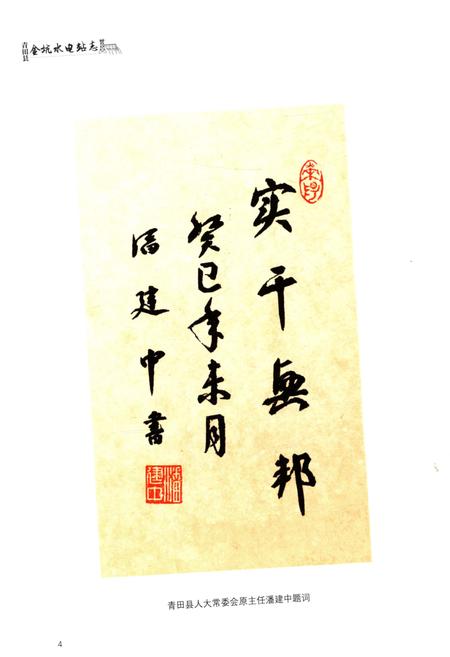 青田县
金坑水电站志
实干兴邦
癸巳年未月
潘建中书
潘建中
青田县人大常委会原主任潘建中题词
4